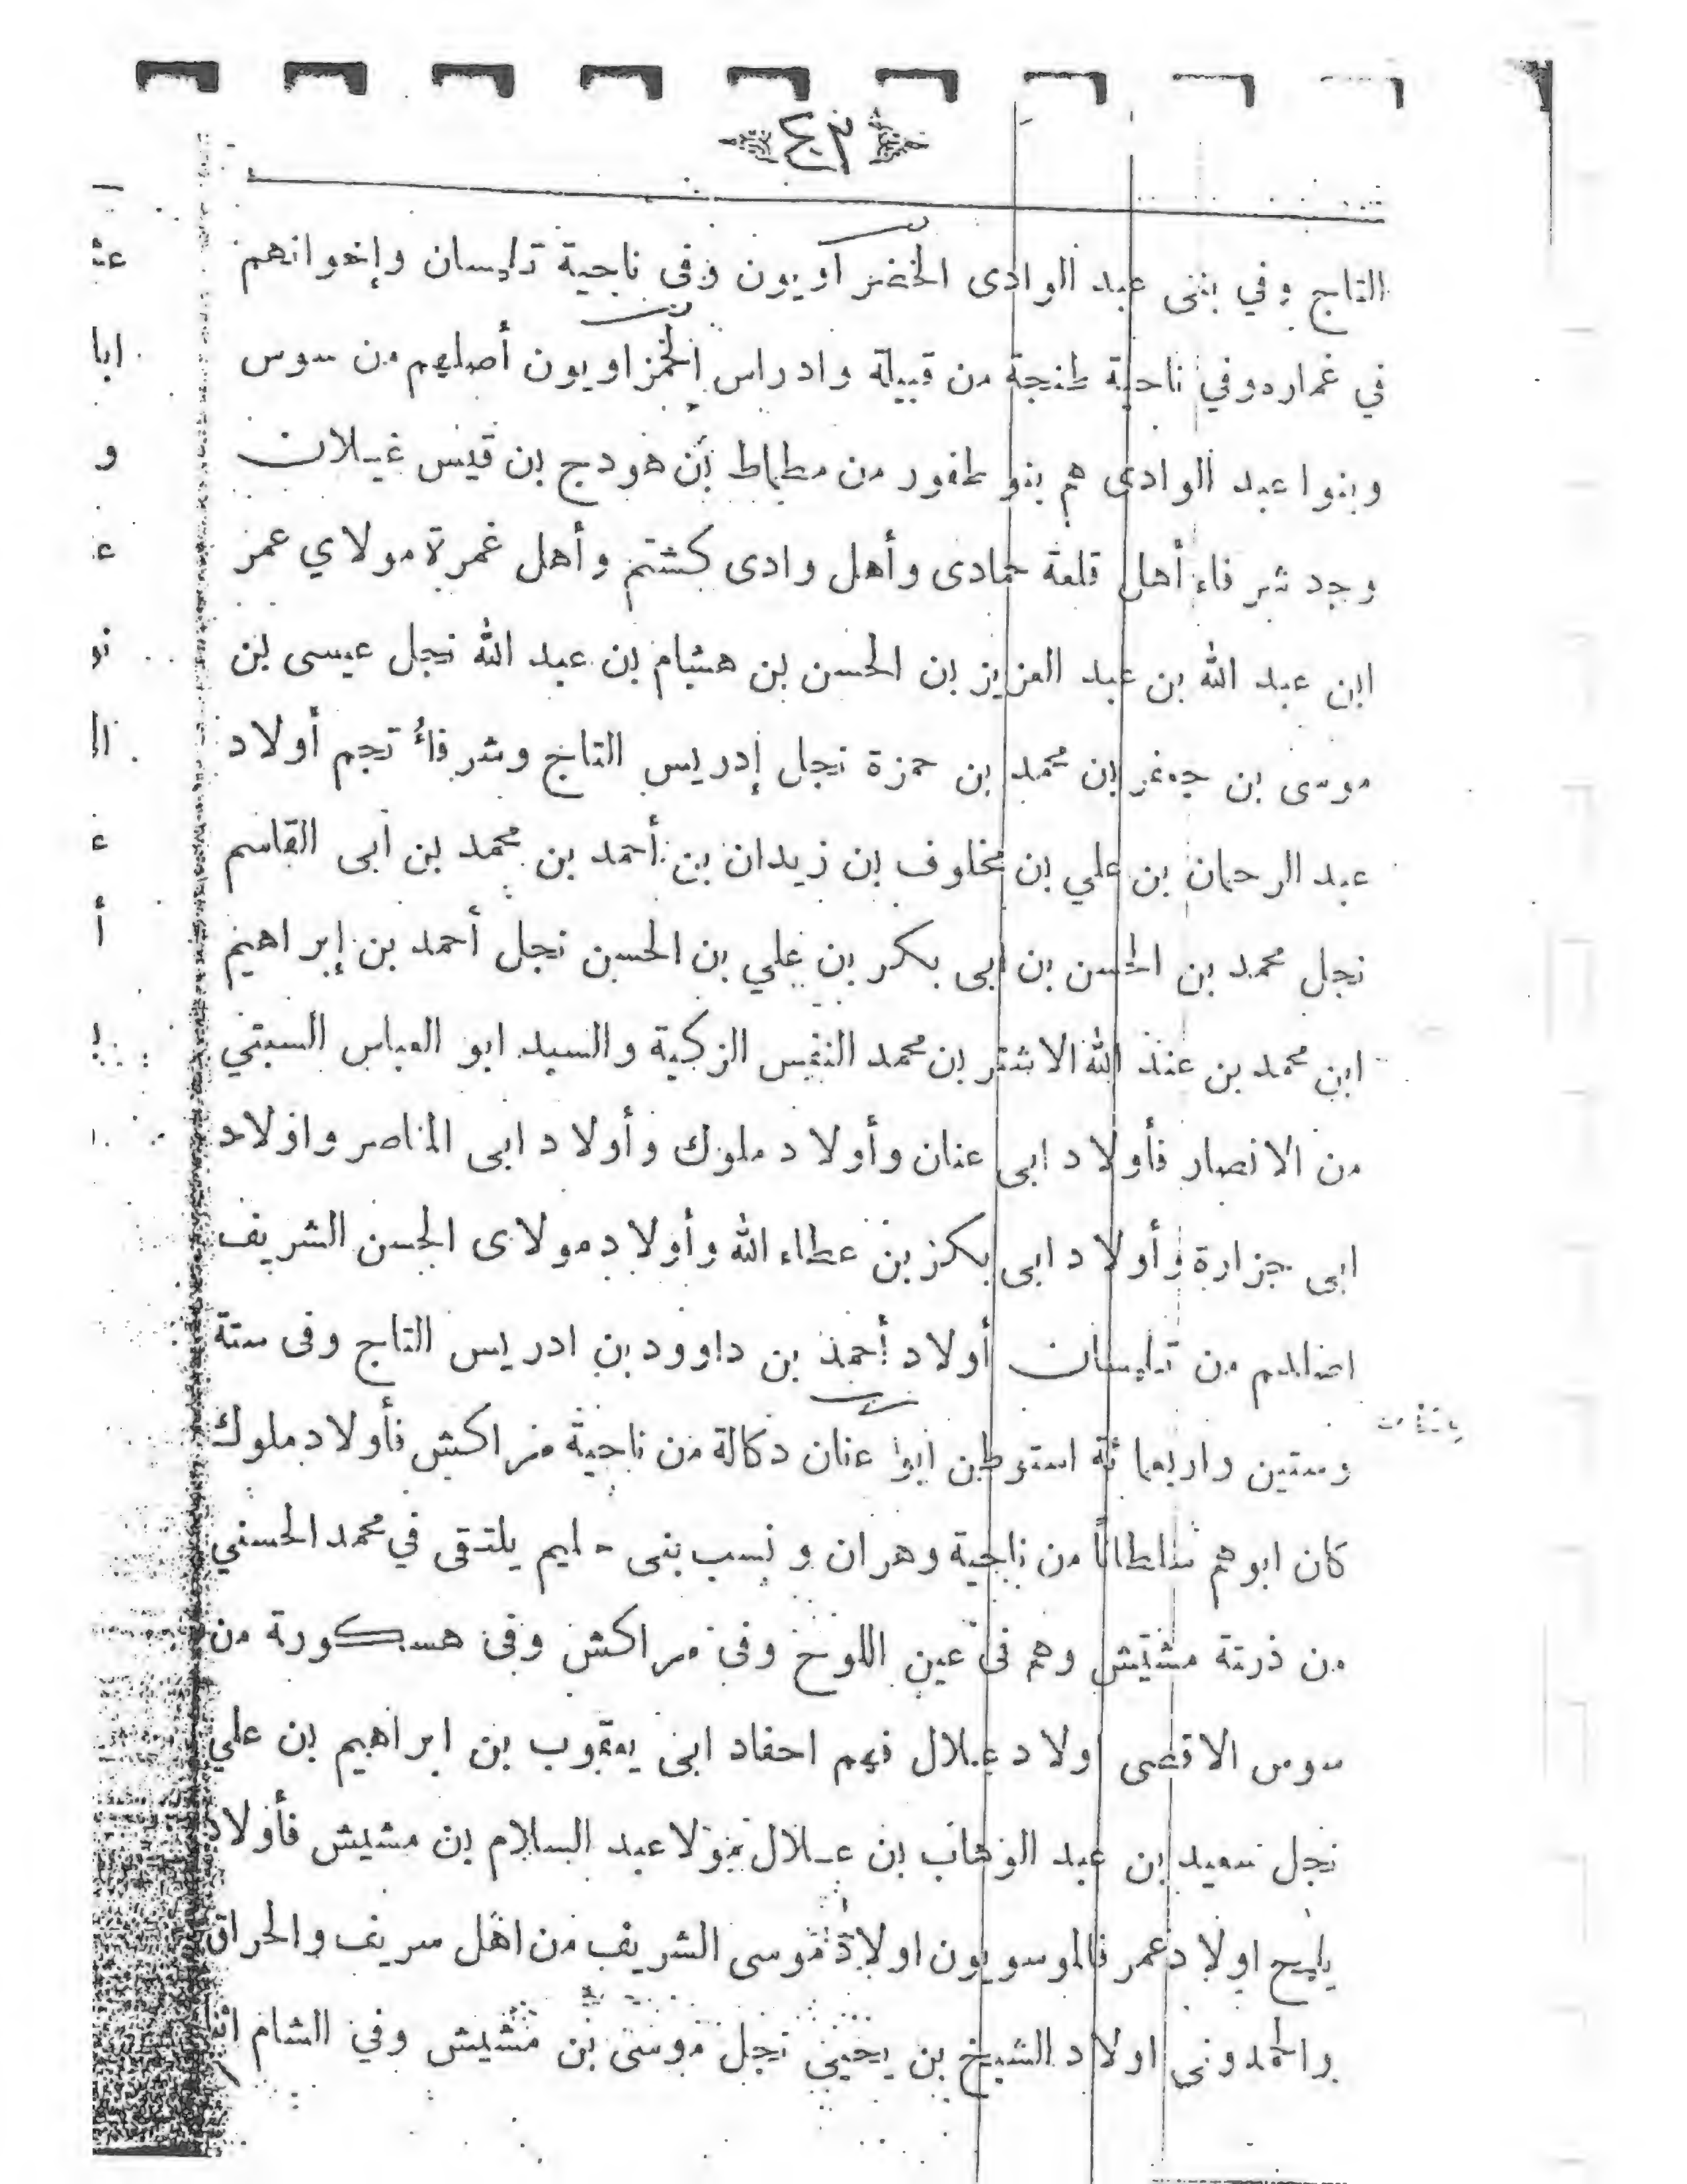 ٤٣
التاج وفي بنى عبد الوادى الخمزاويون وفى ناحية تلمسان وإخوانهم
في غمار وفي ناحية طنجة من قبيلة وادراس الخمزاويون أصلهم من سوس
وبنوا عبد الوادى هم بنو طفور من مطماط بن هودج بن قيس غيلان
وجد شرفاء أهل قلعة حمادى وأهل وادى كشتم وأهل غمرة مولاي عمر
ابن عبد الله بن عبد العزيز بن الحسن بن هشام بن عبد الله نجل عيسى بن
موسى بن جعفر بن محمد بن حمزة نجل إدريس التاج وشرفاء تجم أولاد
عبد الرحمان بن علي بن مخلوف بن زيدان بن أحمد بن محمد بن أبى القاسم
نجل محمد بن الحسن بن ابى بكر بن علي بن الحسن نجل أحمد بن إبراهيم
ابن محمد بن عبد الله الاشتر بن محمد النفس الزكية والسيد ابو العباس السبتي
من الانصار فأولاد ابى عنان وأولاد ملوك وأولاد ابى الناصر واولاد
ابى جزارة وأولاد ابى بكر بن عطاء الله وأولاد مولاى الحسن الشريف
اصلهم من تلمسان أولاد أحمد بن داوود بن ادريس التاج وفى ستة
وستين واربعمائة استوطن ابوا عنان دكالة من ناحية مراكش فأولاد ملوك
كان ابوهم سلطانًا من ناحية وهران ونسب بنى حليم يلتقى في محمد الحسني
من ذرتة مشيش وهم فى عين اللوح وفى مراكش وفى هسكورة من
سوس الاقصى اولاد علال فهم احفاد ابى يعقوب بن ابراهيم بن علي
نجل سعيد بن عبد الوهاب بن علال مولا عبد السلام بن مشيش فأولاد
يليح اولاد عمر فالموسويون اولاد موسى الشريف من اهل سريف والحراق
والحمدونى اولاد الشيخ بن يحيى نجل موسى بن مشيش وفي الشام